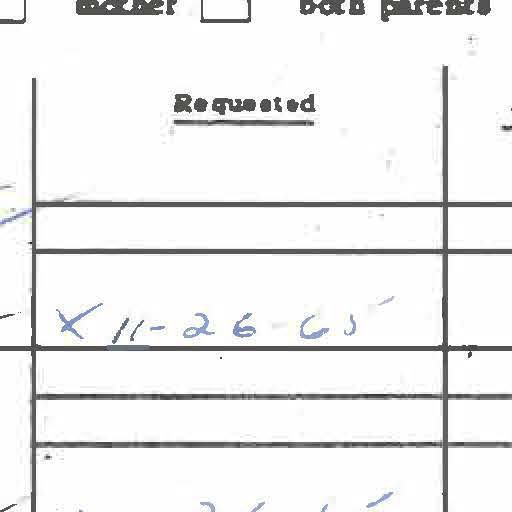 mother both parents
Requested
X 11-26-65